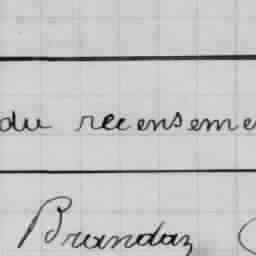 du receseme
Brandaz